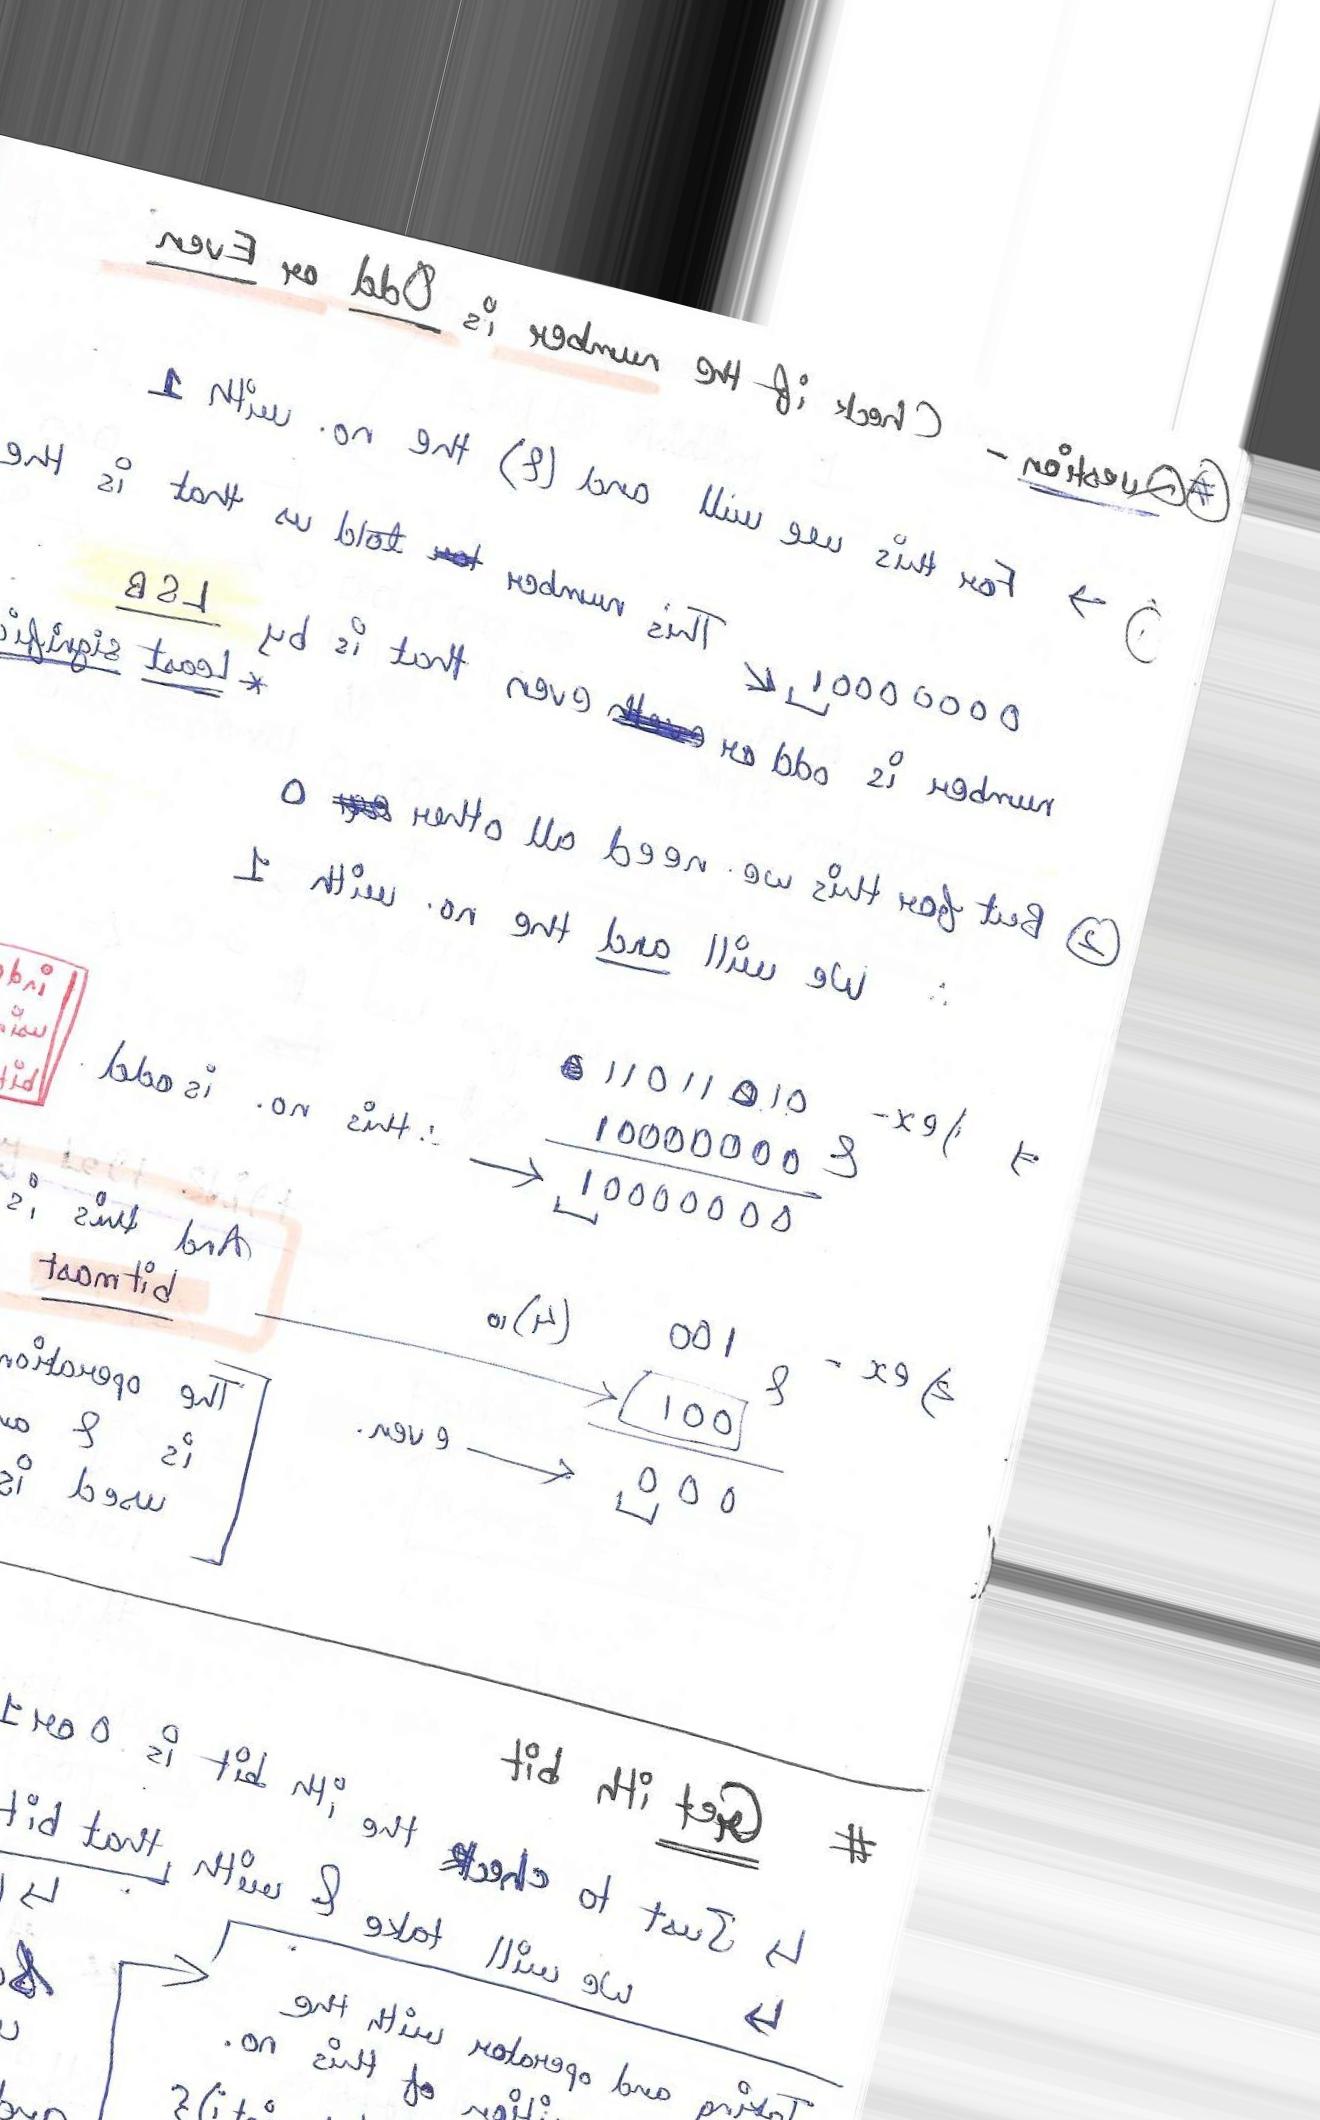 # Question - Check if the number is Odd or Even
1) → For this we will and (&) the no. with 1
00000001 This number told us that is the
number is odd or even that is by LSB
* Least signific
2 But for this we need all other 0
∴ we will and the no. with 1
→ 1) ex- 010 11011
& 00000001
00000001 → ∴ this no. is odd.
And this is
bitmast
2) ex - 100 (4)10
& 001
000 → even.
The operation
is & an
used is
# Get ith bit
↳ Just to check the ith bit is 0 or 1
↳ we will take & with that bit
Taking and operator with the
of this no.